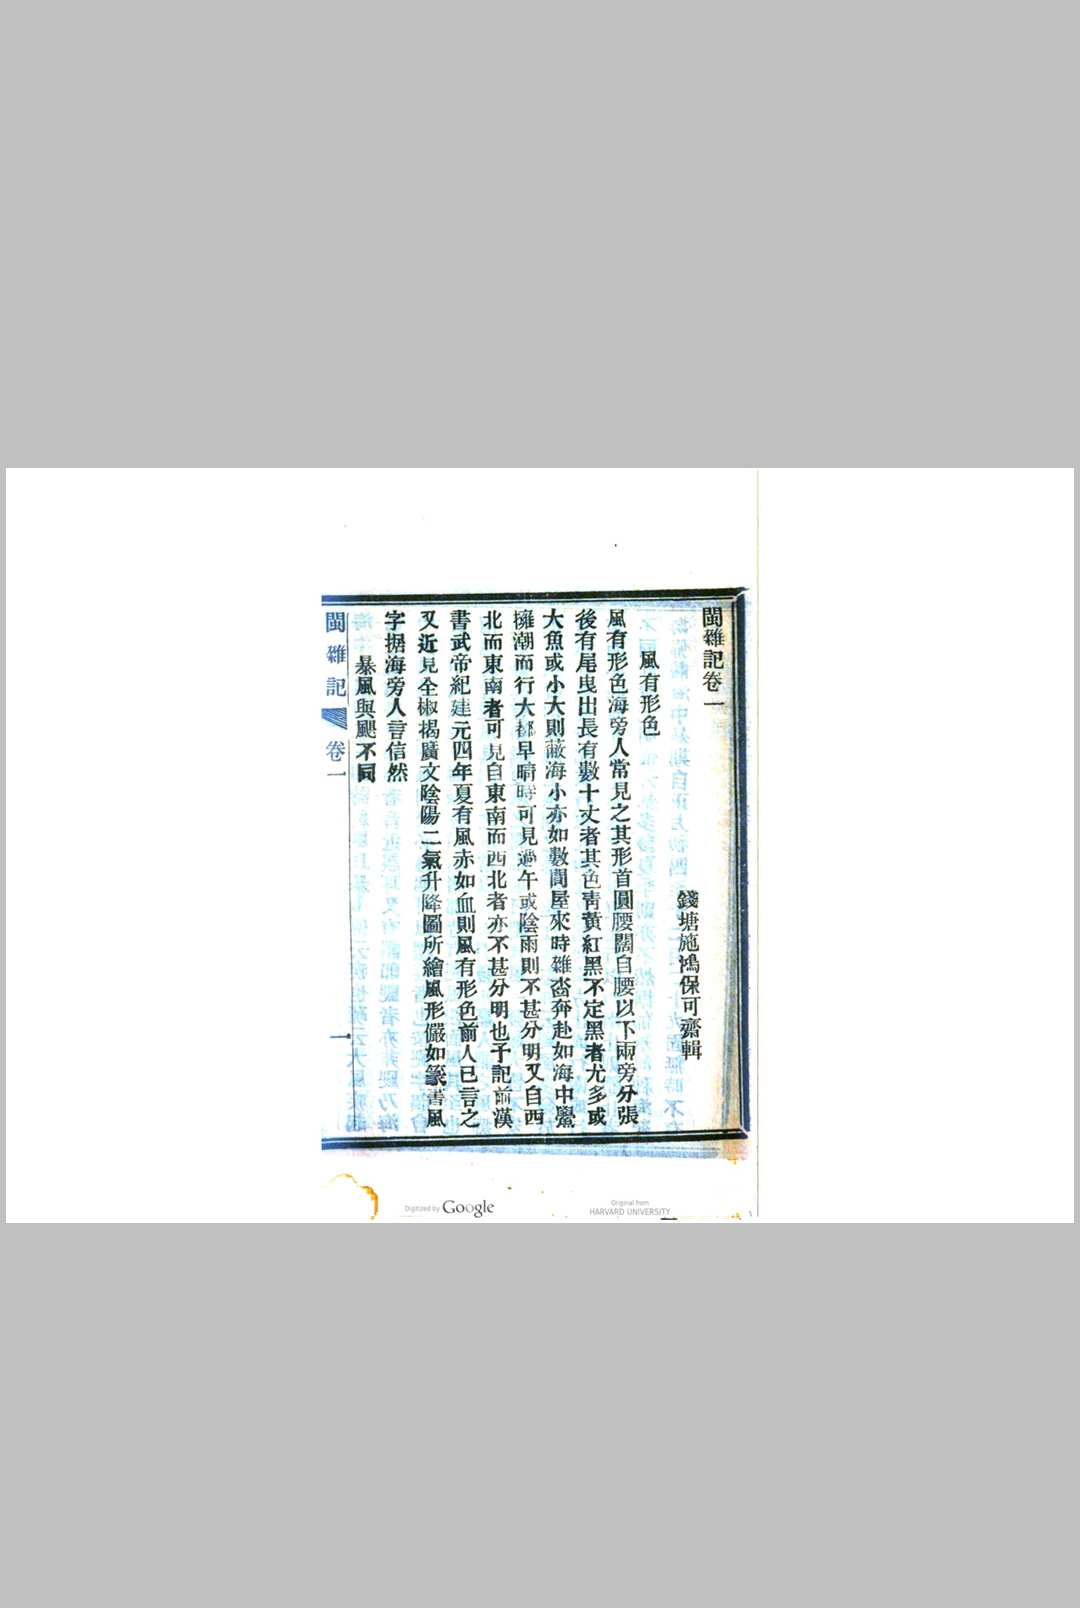 閩雜記卷一
錢塘施鴻保可齋輯
風有形色
風有形色海旁人常見之其形首圓腰闊自腰以下兩旁分張
後有尾曳出長有數十丈者其色青黃紅黑不定黑者尤多或
大魚或小大則蔽海小亦如數間屋來時雜沓奔赴如海中鱟
擁潮而行大都早晴時可見過午或陰雨則不甚分明又自西
北而東南者可見自東南而西北者亦不甚分明也予記前漢
書武帝紀建元四年夏有風赤如血則風有形色前人已言之
又近見全椒揭廣文陰陽二氣升降圖所繪風形儼如篆書風
字據海旁人言信然
暴風與颶不同
閩雜記 卷一 一
Digitized by Google
Original from
HARVARD UNIVERSITY